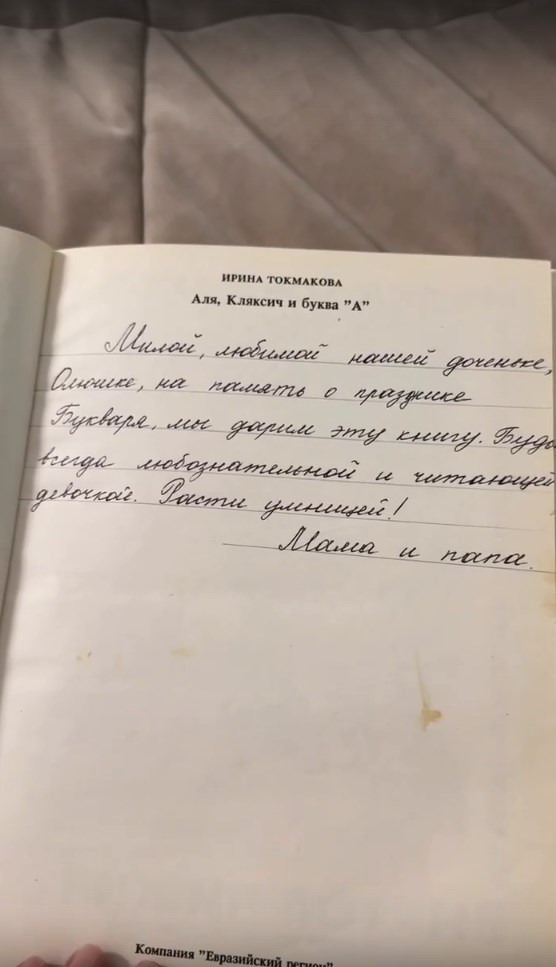 ИРИНА ТОКМАКОВА
Аля, Кляксич и буква "А"
Милой, любимой нашей доченьке,
Олюшке, на память о празднике
Букваря, мы дарим эту книгу. Будь
всегда любознательной и читающей
девочкой. Расти умницей!
Мама и папа.
Компания "Евразийский регион"